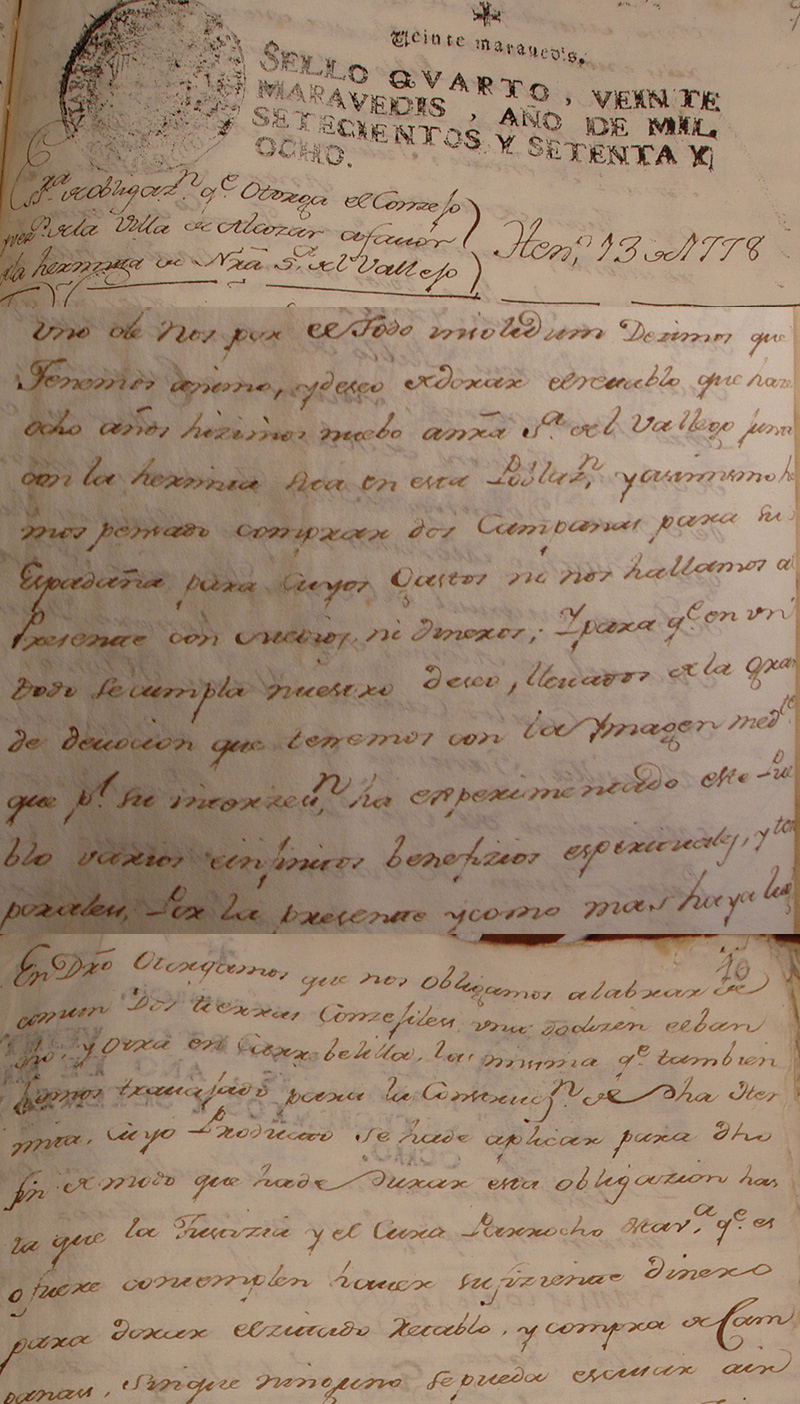 Veinte maravedis.
SELLO QVARTO, VEINTE
MARAVEDIS, AÑO DE MIL
SETECIENTOS Y SETENTA Y
OCHO.
Ss.ra de obligaz.n q.e Otorga el Conzejo
de la Villa de Alcozar a favor
la hermita de Nrã S.ra del Vallejo
Hen.o 13 de 1778
Uno de Nos por el Todo insolidum Dezimos que
Tenemos animo, y deseo de dorar el retablo que haze
ocho años hizimos nuebo a nrã S.a del Vallejo junto
con la hermita sita en esta Poblaz.n, y asimismo he
mos pensado comprar dos Campanas para su
Espadaña para cuyos Gastos ni nos hallamos al
Presente con medios, ni dineros; Y para q.e en un
todo se cumpla nuestro deseo, lleuados de la gran
de deuocion que tenemos con la Ymagen med.te
que p.r su interzes.n ha experimentado este Pue
blo varios e infinitos benefizios espirituales, y tem
porales, Por la presente y como mas haya lugar
En Dr̃o Otorgamos que nos obligamos a labrar de
10
comun Dos tierras Conzejiles una do dizen el ban
, y otra en Carrabelilla, las misma q.e tambien
hemos trauajado para la Construcz.n de dha Her
mita, cuyo Producto se ha de aplicar para dho
fin de modo que ha de durar esta obligazion has
ta que la Justizia y el Cura Parrocho q.e es
o fuere contemplen hauer sufiziente dinero
para dorar el zitado Retablo, y compra de Cam
panas, sin que ninguno se pueda escusar aun